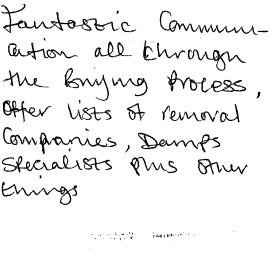 Fantastic Communi-
cation all through
the Buying Process,
Offer lists of removal
Companies, Damps
Specialists Plus other
things